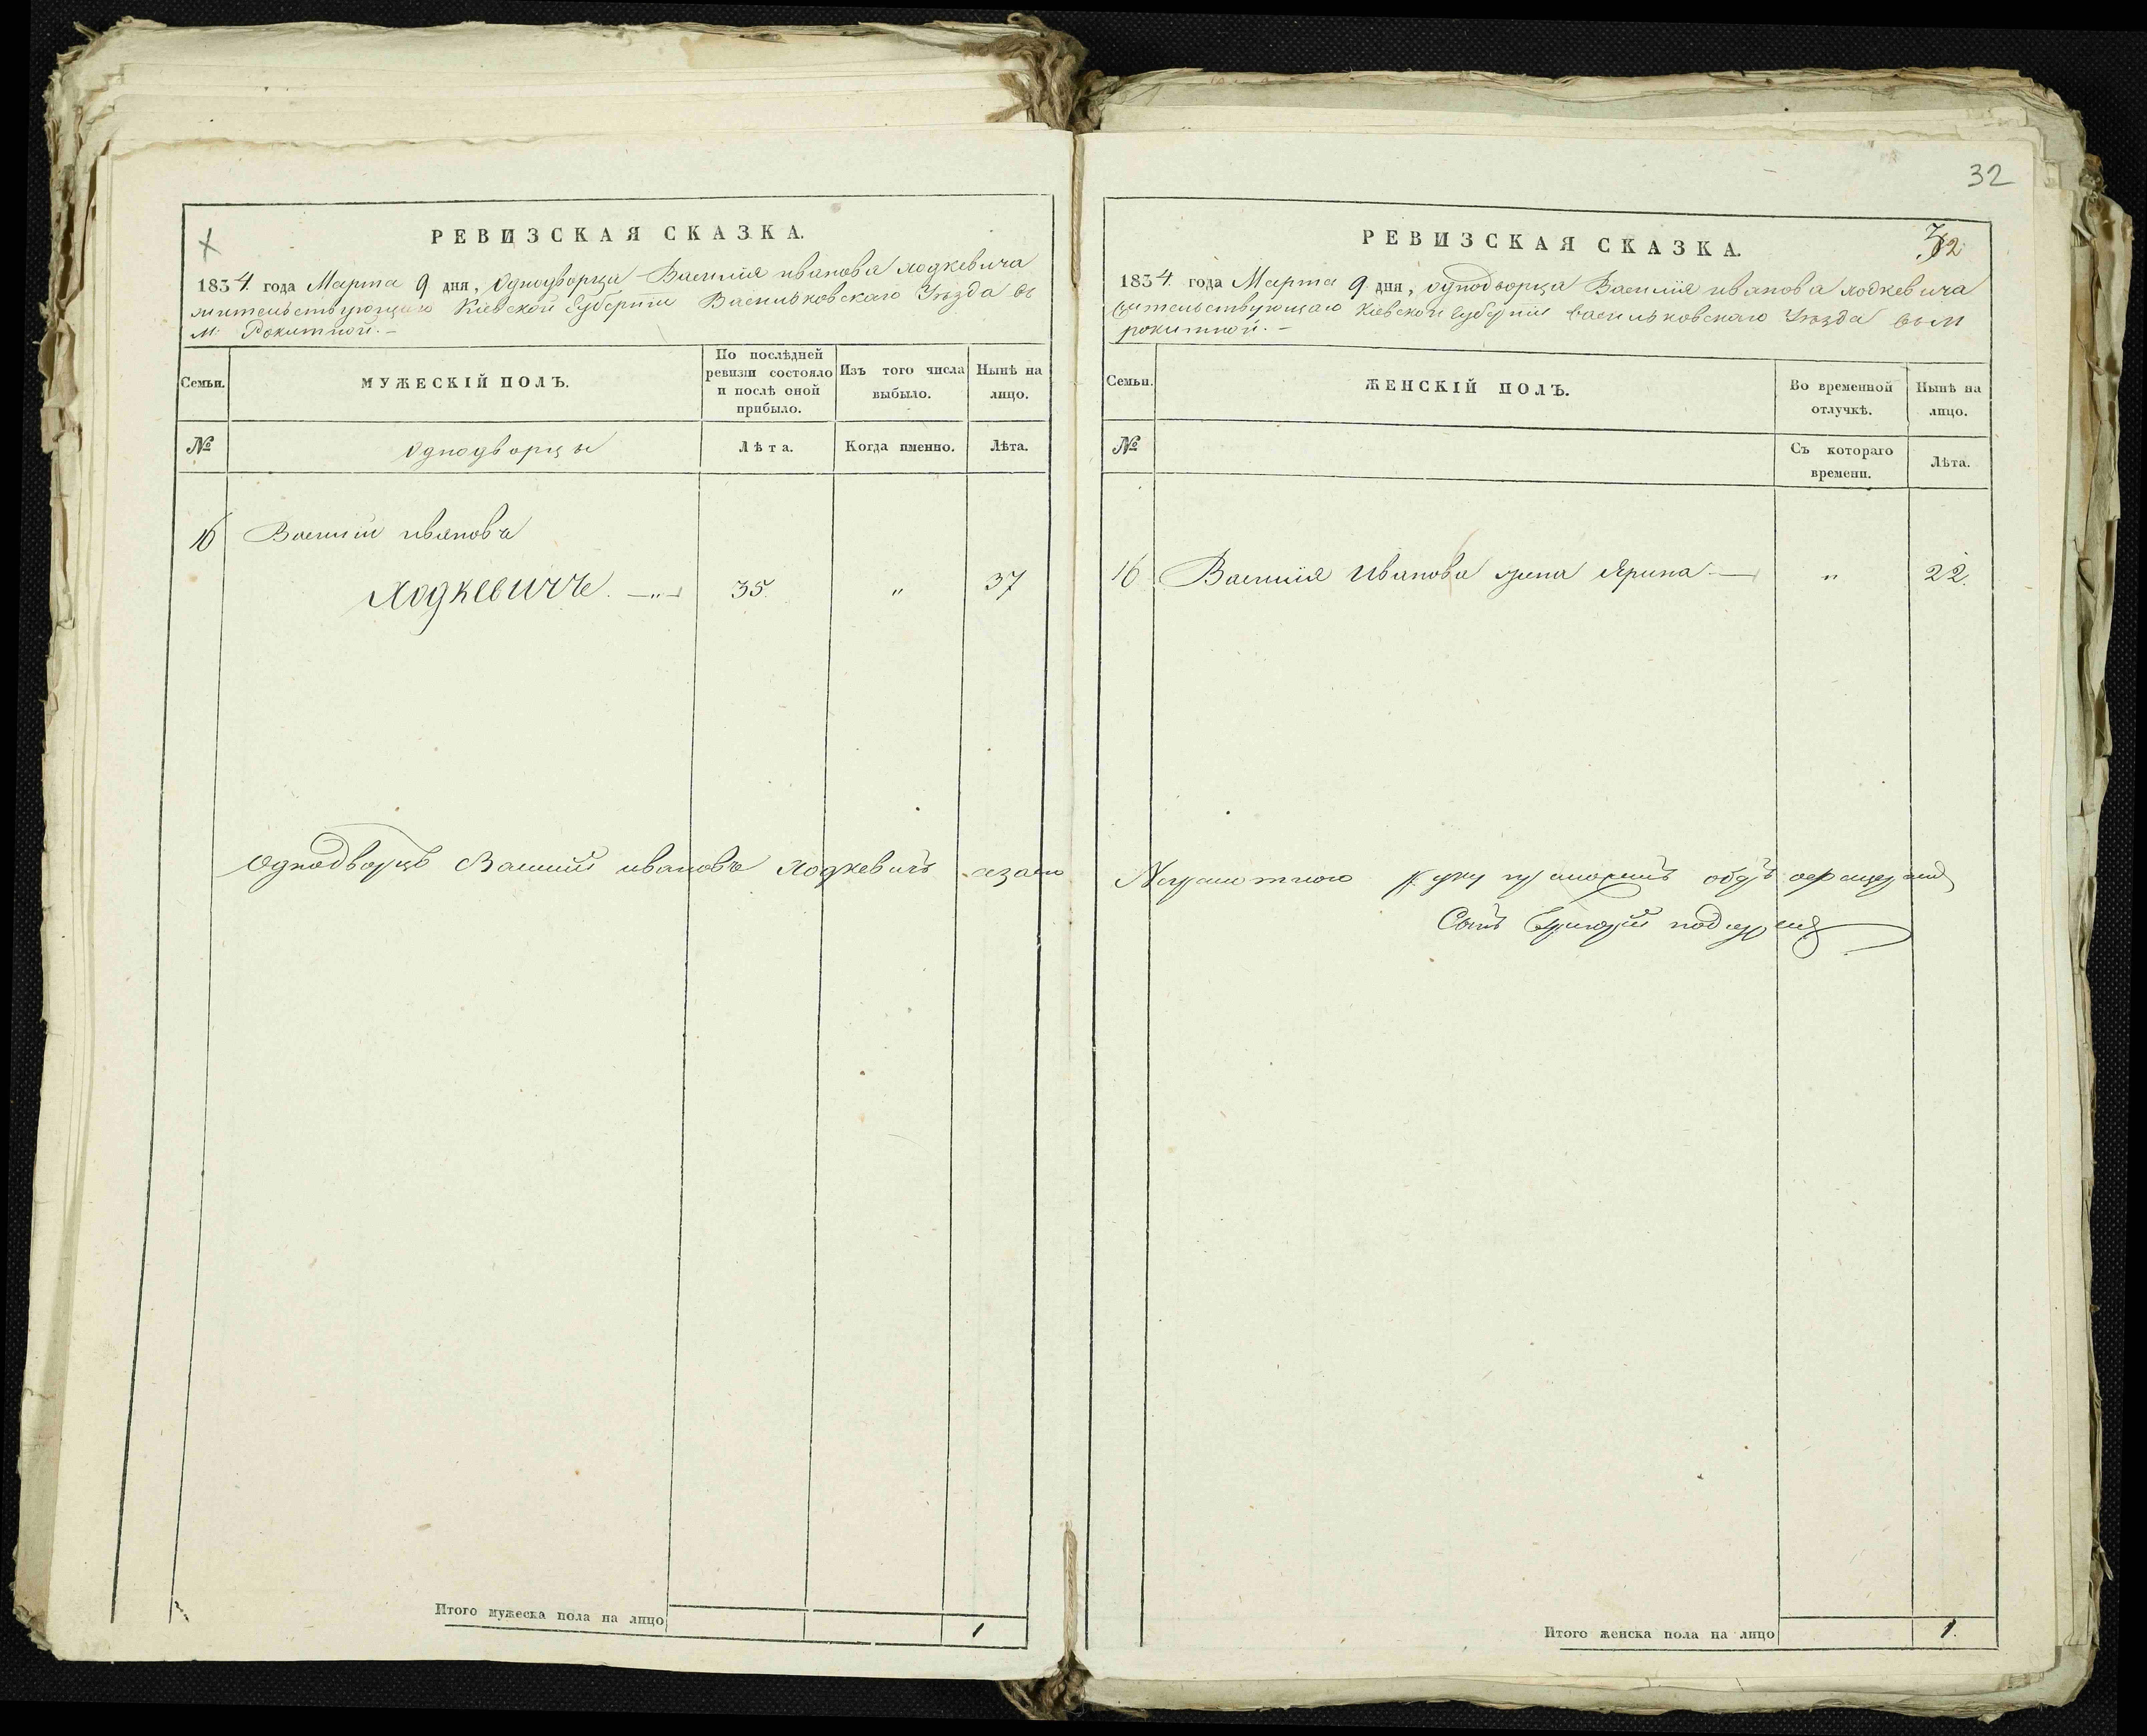 РЕВИЗСКАЯ СКАЗКА.
1834 года Марта 9 дня, Однодворца Василия иванова ходкевича
жительствующаго Кіевской Губерніи Васильковскаго Уезда въ
м. Рокитной.–
Семьи.
МУЖЕСКІЙ ПОЛЪ.
По послѣдней ревизіи состояло и послѣ оной прибыло.
Изъ того числа выбыло.
Нынѣ на лицо.
№
Однодворцы
Лѣта.
Когда именно.
Лѣта.
16 Василий ивановъ
Ходкевичъ. 35. „ 37
Однодворецъ Василий ивановъ ходкевичъ а за его
Итого мужеска пола на лицо 1
32
РЕВИЗСКАЯ СКАЗКА.
32
1834. года Марта 9 дня, однодворца Василия иванова ходкевича
жительствующаго Кіевской Губерніи васильковскаго Уезда въ м
рокитной.–
Семьи.
ЖЕНСКІЙ ПОЛЪ.
Во временной отлучкѣ.
Нынѣ на лицо.
№
Съ котораго времени.
Лѣта.
16 Василия Иванова жена Ярина „ 22.
Неграмотного
Сынъ Григорий
Итого женска пола на лицо 1.